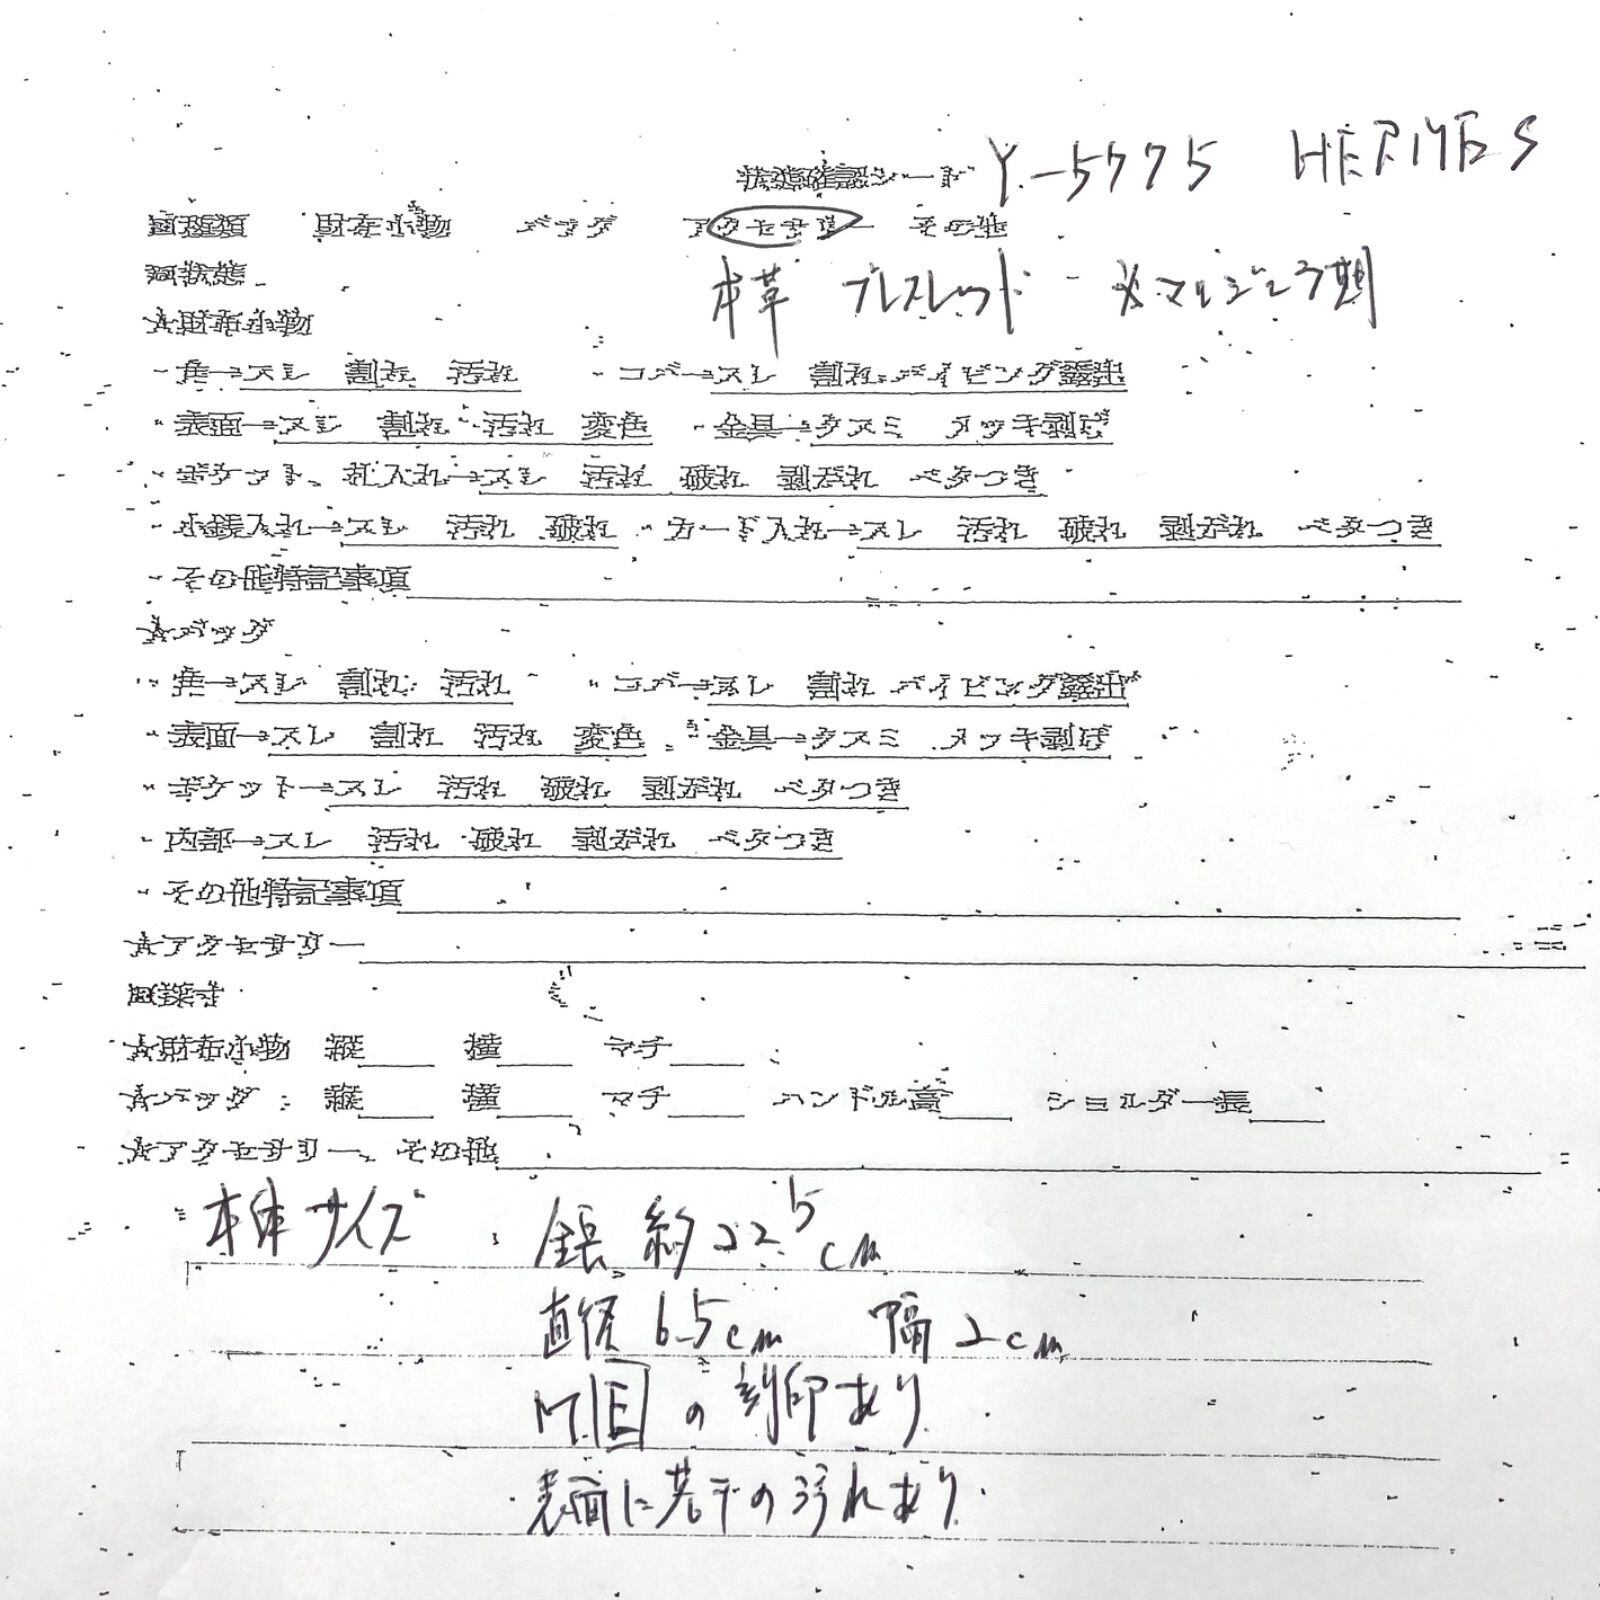 状態確認シート Y-5775 HERMES
□種類 財布小物 バッグ アクセサリー その他
□状態
本革 ブレスレット ※マルジェラ期
☆財布小物
・角→スレ 割れ 汚れ ・コバ→スレ 割れ パイピング露出
・表面→スレ 割れ 汚れ 変色 ・金具→クスミ メッキ剥げ
・ポケット、札入れ→スレ 汚れ 破れ 剥がれ ベタつき
・小銭入れ→スレ 汚れ 破れ ・カード入れ→スレ 汚れ 破れ 剥がれ ベタつき
・その他特記事項
☆バッグ
・角→スレ 割れ 汚れ ・コバ→スレ 割れ パイピング露出
・表面→スレ 割れ 汚れ 変色 ・金具→クスミ メッキ剥げ
・ポケット→スレ 汚れ 破れ 剥がれ ベタつき
・内部→スレ 汚れ 破れ 剥がれ ベタつき
・その他特記事項
☆アクセサリー
□採寸
☆財布小物 縦 横 マチ
☆バッグ 縦 横 マチ ハンドル高 ショルダー長
☆アクセサリー、その他
本体サイズ 全長 約22.5cm
直径 6.5cm 幅 2cm
Eの刻印あり
表面に若干の汚れあり